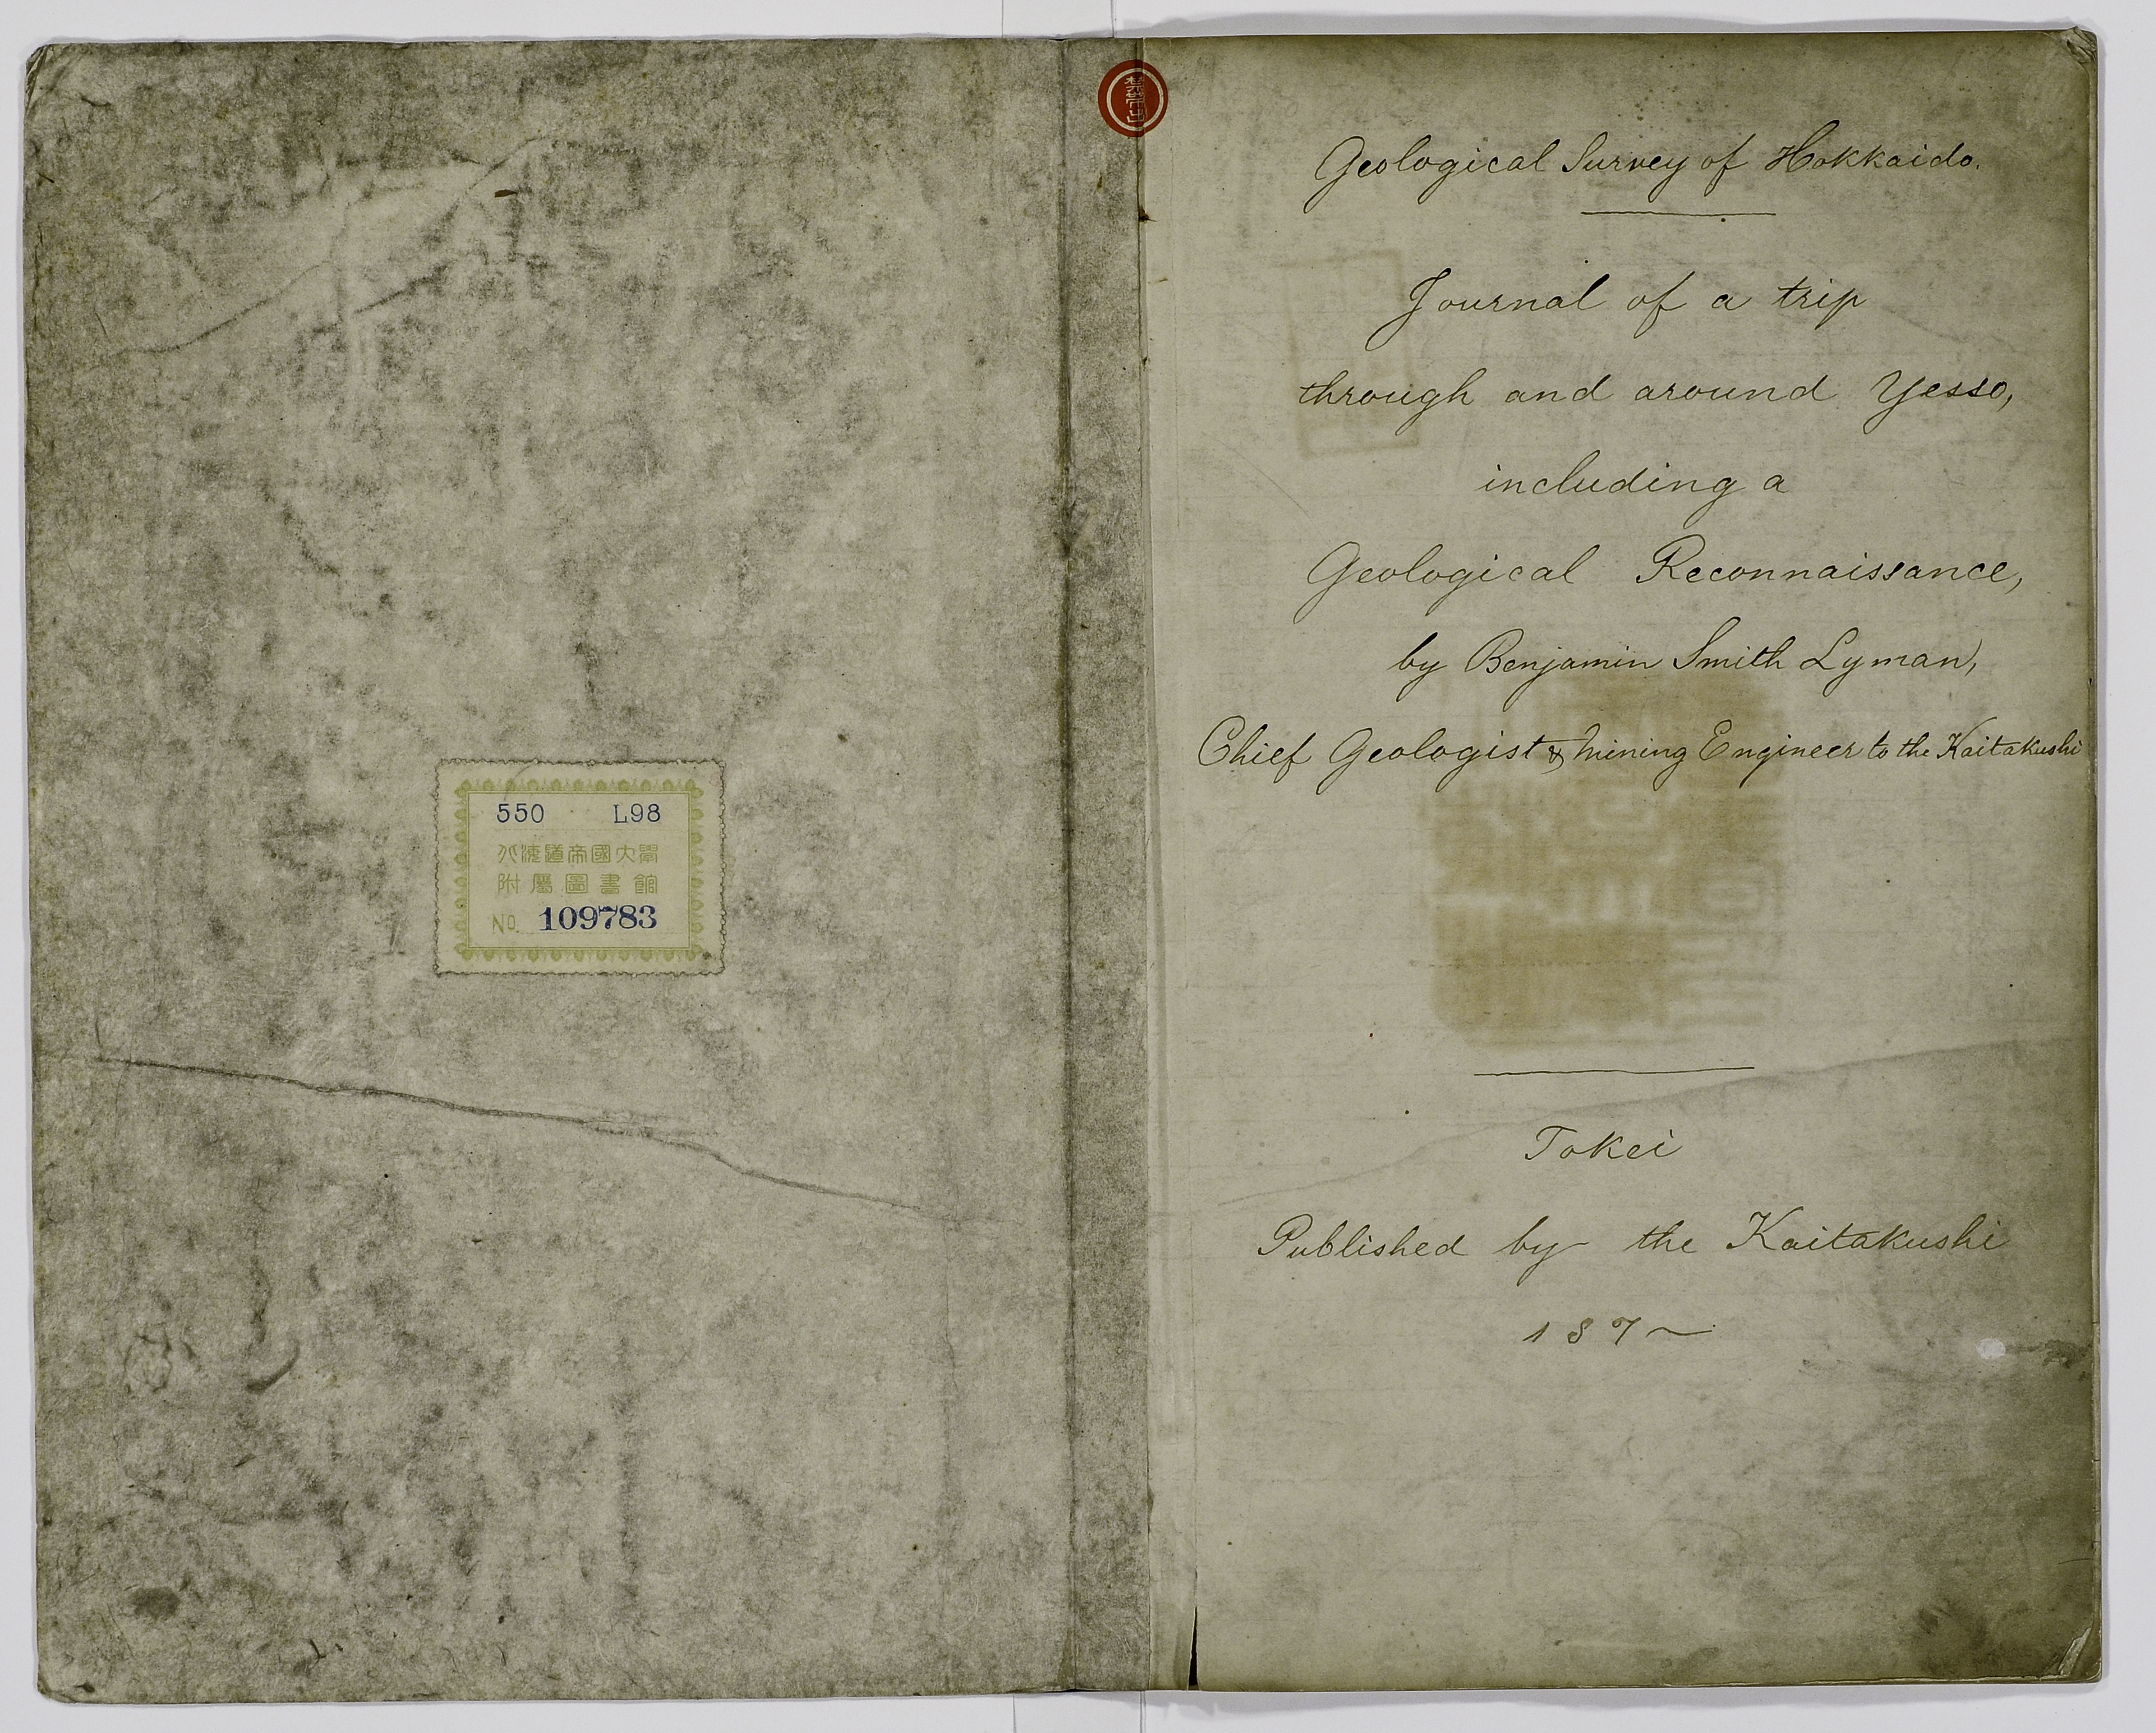 550 L98
北海道帝國大學
附屬圖書館
No. 109783
Geological Survey of Hokkaido.
Journal of a trip
through and around Yesso,
including a
Geological Reconnaissance,
by Benjamin Smith Lyman,
Chief Geologist & Mining Engineer to the Kaitakushi
Tokei
Published by the Kaitakushi
187~